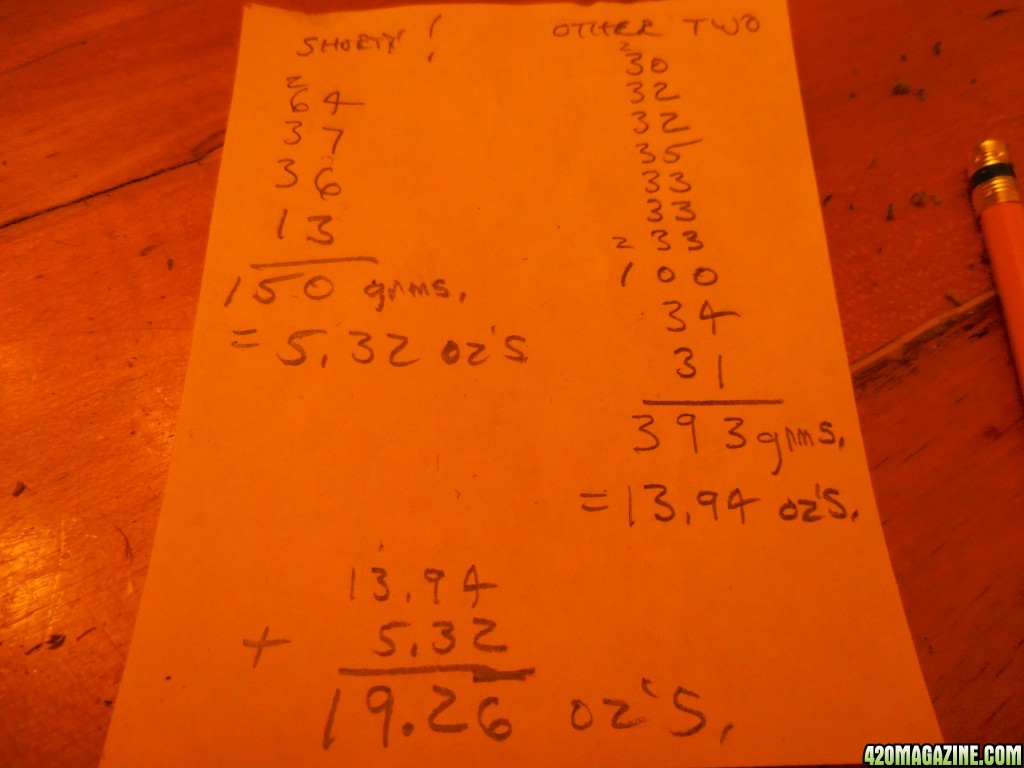 SHORTY!
2
64
37
36
13
150 grms.
= 5.32 oz's
OTHER TWO
2
30
32
32
35
33
33
2 33
100
34
31
393 grms.
= 13.94 oz's.
1
13.94
+ 5.32
19.26 oz's.
420MAGAZINE.COM